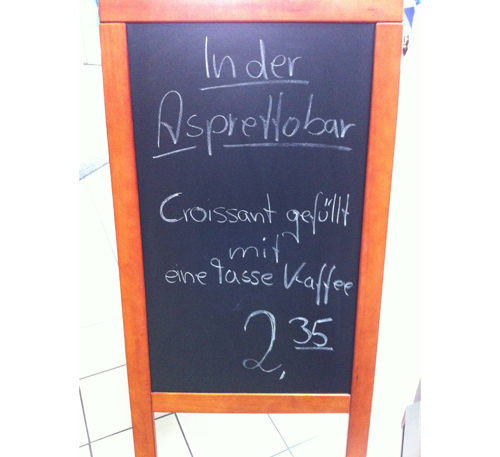 In der
Asprettobar
Croissant gefüllt
mit
eine tasse Kaffee
2,35